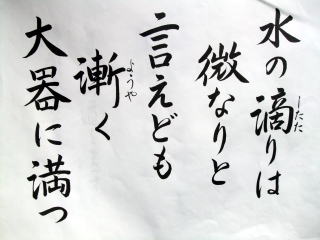 水の滴りは
微なりと
言えども
漸く
大器に満つ
したた
ようや